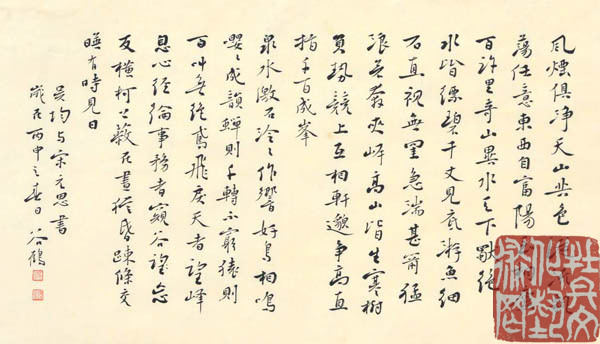 風煙俱净天山共色
蕩任意東西自富陽
百許里奇山異水天下獨絕
水皆縹碧千丈見底游魚細
石直視無礙急湍甚箭猛
浪若奔夾岸高山皆生寒樹
負勢競上互相軒邈争高直
指千百成峯
泉水激石泠々作響好鳥相鳴
嚶々成韻蟬則千轉不窮猿則
百叫無絕鳶飛戾天者望峰
息心經綸事務者窺谷望忘
反横柯上蔽在晝猶昏疎條交
暎有時見日
吴均与宋元思書
歲在丙申之春日 谷鶴